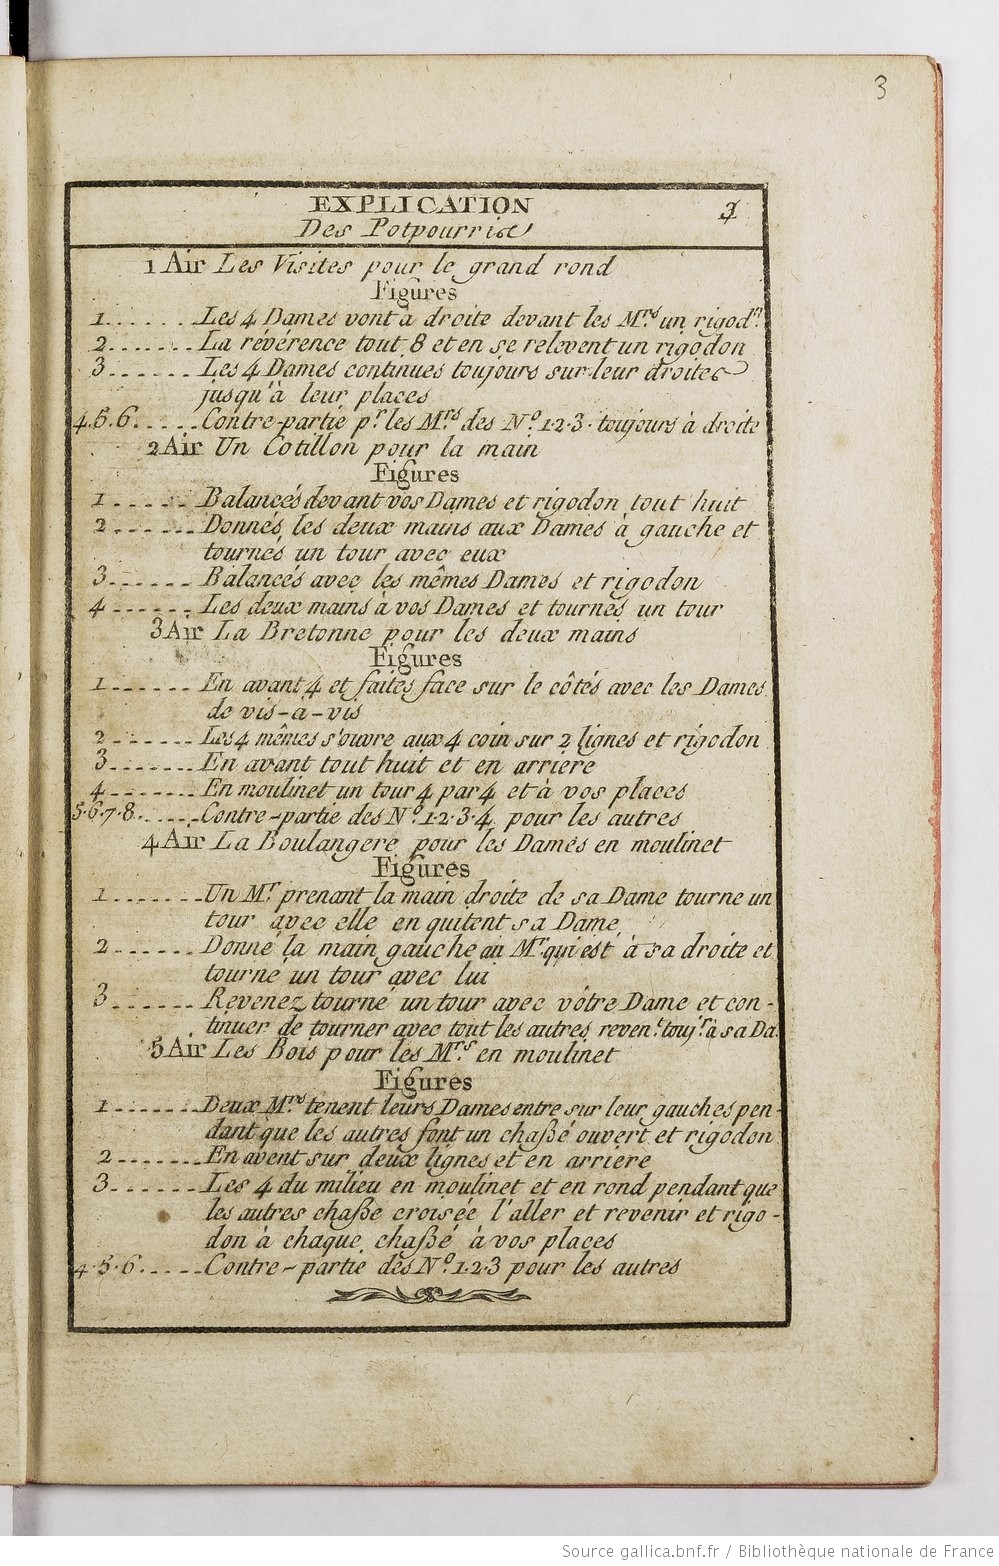 3
EXPLICATION
Des Potpourris
1 Air Les Visites pour le grand rond
Figures
1....... Les 4 Dames vont à droite devant les M.rs un rigod.n
2....... La révérence tout 8 et en se relevent un rigodon
3....... Les 4 Dames continues toujours sur leur droites
jusqu'à leur places
4.5.6..... Contre-partie p.r les M.rs des N.o 1.2.3. toujours à droite
2 Air Un Cotillon pour la main
Figures
1....... Balancés devant vos Dames et rigodon tout huit
2....... Donnés les deux mains aux Dames à gauche et
tournés un tour avec eux
3....... Balancés avec les mêmes Dames et rigodon
4....... Les deux mains à vos Dames et tournés un tour
3 Air La Bretonne pour les deux mains
Figures
1....... En avant 4 et faites face sur le côtés avec les Dames
de vis-a-vis
2....... Les 4 mêmes s'ouvre aux 4 coin sur 2 lignes et rigodon
3....... En avant tout huit et en arriére
4....... En moulinet un tour 4 par 4 et à vos places
5.6.7.8..... Contre-partie des N.o 1.2.3.4. pour les autres
4 Air La Boulangere pour les Dames en moulinet
Figures
1....... Un M.r prenant la main droite de sa Dame tourne un
tour avec elle en quitent sa Dame
2....... Donné la main gauche au M.r qui est à sa droite et
tourne un tour avec lui
3....... Revenez tourné un tour avec vôtre Dame et con-
tinuer de tourner avec tout les autres reven.t touj.r à sa Da.
5 Air Les Bois pour les M.rs en moulinet
Figures
1....... Deux M.rs tenent leurs Dames entre sur leur gauches pen-
dant que les autres font un chaßé ouvert et rigodon
2....... En avent sur deux lignes et en arriere
3....... Les 4 du milieu en moulinet et en rond pendant que
les autres chaße croisée l'aller et revenir et rigo-
don à chaque chaßé à vos places
4.5.6..... Contre-partie des N.o 1.2.3 pour les autres
Source gallica.bnf.fr / Bibliothèque nationale de France